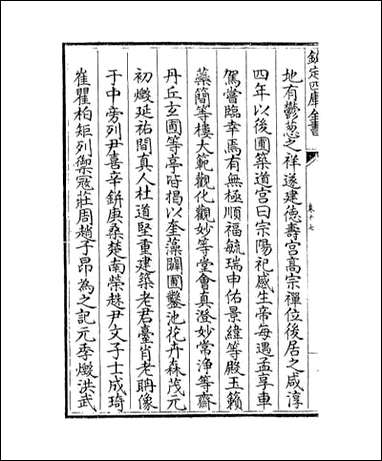 欽定四庫全書
卷十七
地有鬱葱之祥遂建德壽宮高宗禪位後居之咸淳
四年以後圃築道宮曰宗陽祀感生帝每遇孟享車
駕嘗臨幸焉有無極順福毓瑞申佑景緯等殿玉籟
蘂簡等樓大範觀化觀妙等堂會真澄妙常淨等齋
丹丘玄圃等亭皆揭以奎藻闢圃鑿池花卉森茂元
初燬延祐間真人杜道堅重建築老君臺肖老聃像
于中旁列尹喜辛鈃庚桑楚南榮趎尹文子士成綺
崔瞿柏矩列禦冦莊周趙子昂為之記元季燬洪武